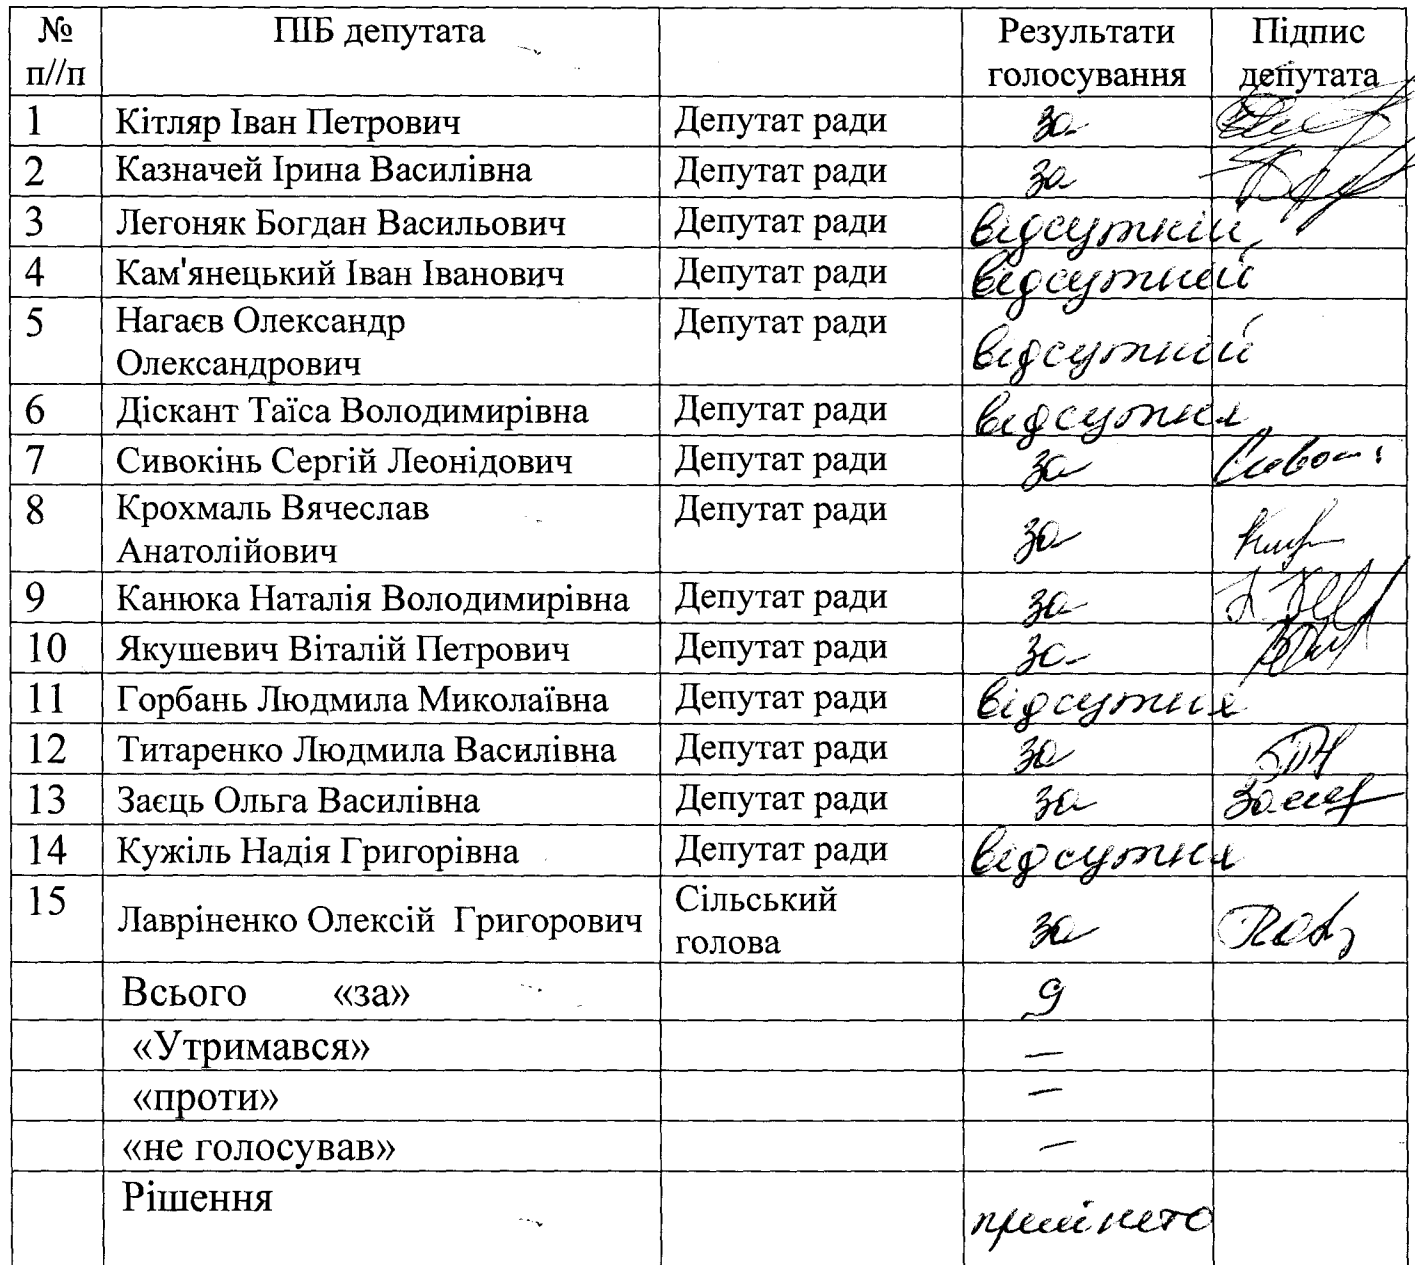 № ПІБ депутата Результати Підпис
п//п голосування депутата
1 Кітляр Іван Петрович Депутат ради за
2 Казначей Ірина Василівна Депутат ради за
3 Легоняк Богдан Васильович Депутат ради відсутній
4 Кам'янецький Іван Іванович Депутат ради відсутній
5 Нагаєв Олександр Депутат ради відсутній
Олександрович
6 Діскант Таїса Володимирівна Депутат ради відсутня
7 Сивокінь Сергій Леонідович Депутат ради за
8 Крохмаль Вячеслав Депутат ради за
Анатолійович
9 Канюка Наталія Володимирівна Депутат ради за
10 Якушевич Віталій Петрович Депутат ради за
11 Горбань Людмила Миколаївна Депутат ради відсутня
12 Титаренко Людмила Василівна Депутат ради за
13 Заєць Ольга Василівна Депутат ради за
14 Кужіль Надія Григорівна Депутат ради відсутня
15 Лавріненко Олексій Григорович Сільський за
голова
Всього «за» 9
«Утримався» —
«проти» —
«не голосував» —
Рішення прийнято